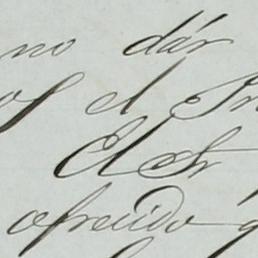 no dár
el
El Sr
ofrecido